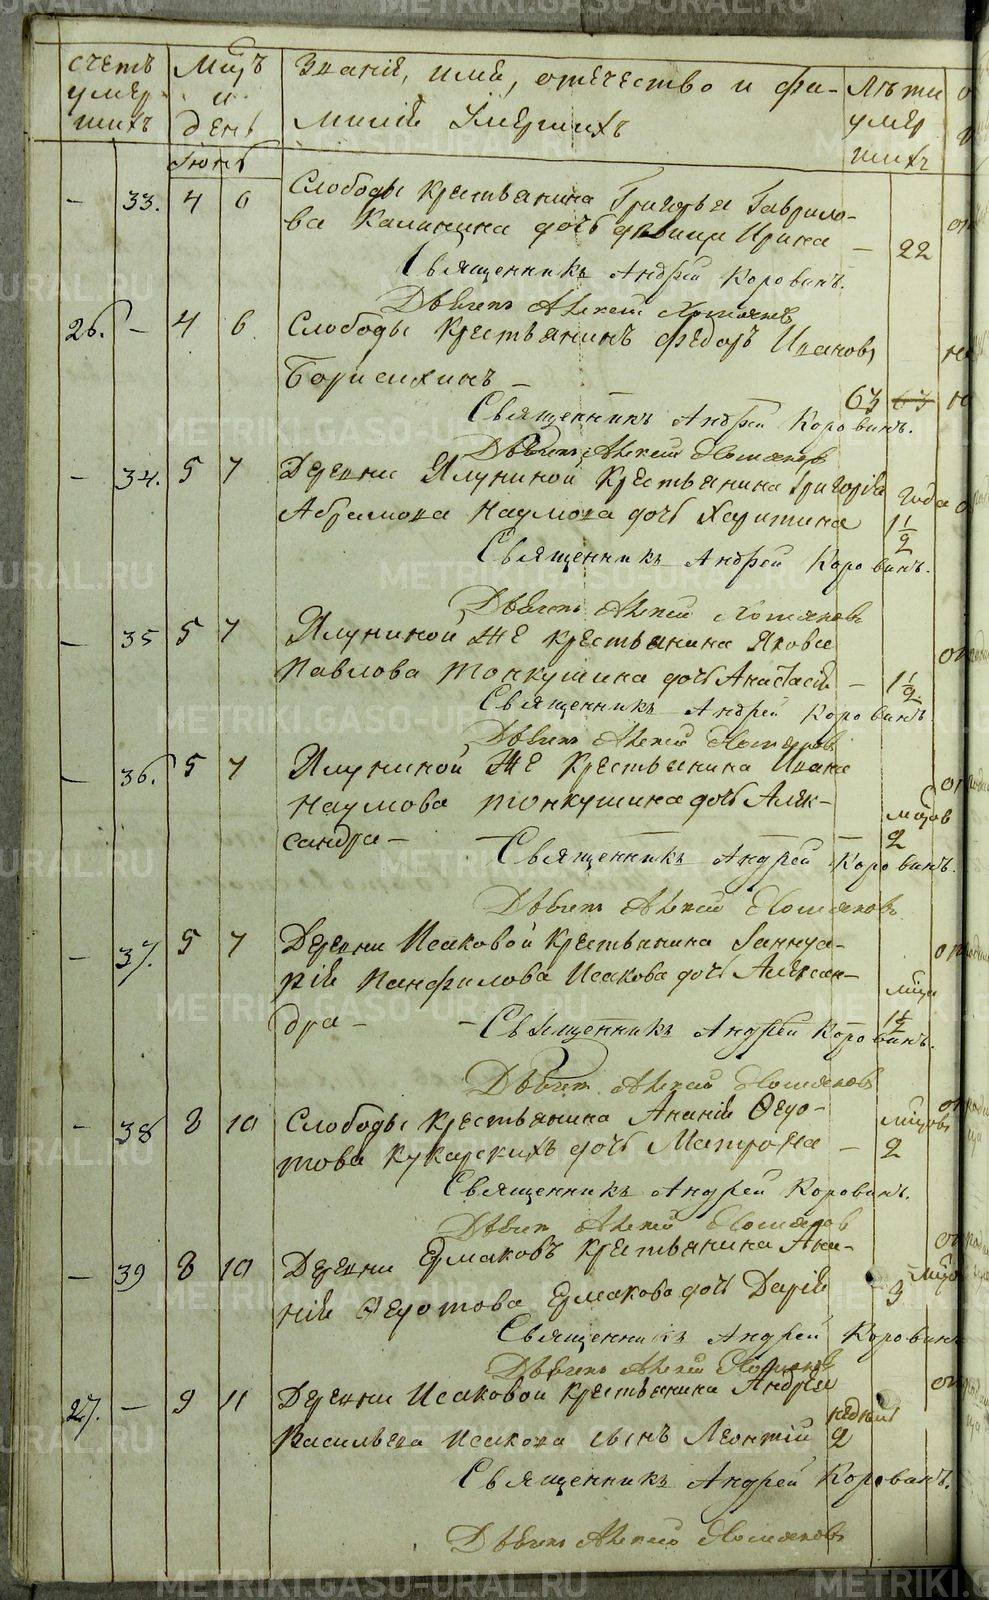 METRIKI.GASO-URAL.RU
счетъ умер шихъ
Мцъ и день
Званіе, имя, отечество и фа-
миліи Умершихъ
Лѣты умер шихъ
Іюнь
– 33. 4 6 Слободы крестьянина Григорья Гаврило-
ва Калинина дочь дѣвица Ирина – 22
Священникъ Андрей Коровинъ.
Дьячекъ Алексей Хомяковъ
26. – 4 6 Слободы крестьянинъ Федоръ Ивановъ
Борисихинъ – 63 63
Священникъ Андрей Коровинъ.
Дьячекъ Алексей Хомяковъ
– 34. 5 7 Деревни Ялуниной крестьянина Григорія года
Абрамова Наумова дочь Харитина 1 1/2
Священникъ Андрей Коровинъ.
Дьячекъ Алексей Хомяковъ
– 35 5 7 Ялуниной же крестьянина Якова
Павлова Тонкушина дочь Анастасія – 1 1/2
Священникъ Андрей Коровинъ
Дьячекъ Алексей Хомяковъ
– 36. 5 7 Ялуниной же крестьянина Ивана
Наумова Тонкушина дочь Алек- мцов
сандра – – 2
Священникъ Андрей Коровинъ.
Дьячекъ Алексей Хомяковъ
– 37. 5 7 Деревни Исаковой крестьянина Іаннуа-
рія Панфилова Исакова дочь Алексан- мцъ
дра – 1 1/2
– Священникъ Андрей Коровинъ.
Дьячекъ Алексей Хомяковъ
– 38 8 10 Слободы крестьянина Ананія Ѳедо- мцовъ
това Кукарскихъ дочь Матрона – 2
Священникъ Андрей Коровинъ.
Дьячекъ Алексей Хомяковъ
– 39 8 10 Деревни Ермаковъ крестьянина Ана- мцо
нія Ѳедотова Ермакова дочь Дарія 3
Священникъ Андрей Коровинъ
Дьячекъ Алексей Хомяковъ
27. – 9 11 Деревни Исаковой крестьянина Андрея
Васильева Исакова сынъ Леонтій недѣль 2
Священникъ Андрей Коровинъ.
Дьячекъ Алексей Хомяковъ